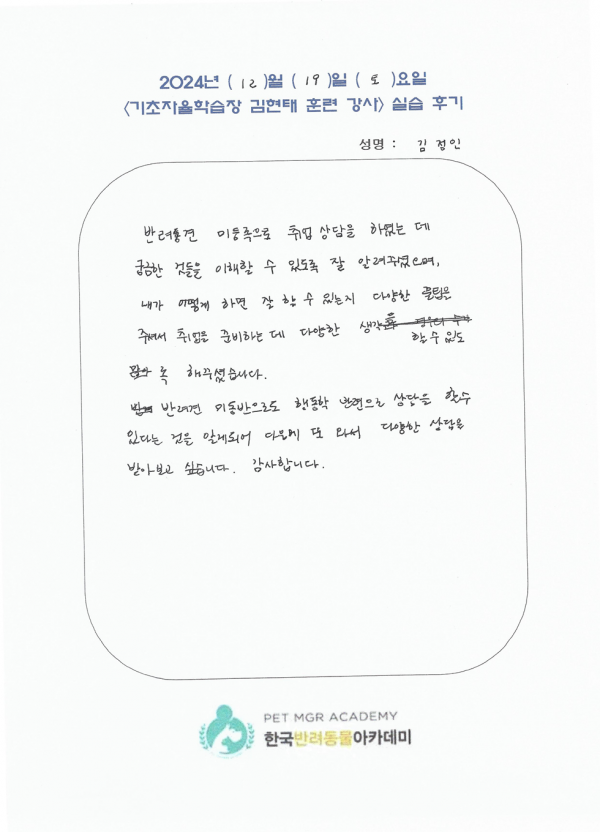 2024년 ( 12 )월 ( 19 )일 ( 토 )요일
<기초자율학습장 김현태 훈련 강사> 실습 후기
성명 : 김정인
반려동견 미용쪽으로 취업 상담을 하였는 데
궁금한 것들을 이해할 수 있도록 잘 알려주셨으며,
내가 어떻게 하면 잘 할 수 있는지 다양한 꿀팁을
주셔서 취업을 준비하는 데 다양한 생각을
할 수 있도
록 해주셨습니다.
반려견 미용반으로도 행동학 관련으로 상담을 할 수
있다는 것을 알게되어 다음에 또 와서 다양한 상담을
받아보고 싶습니다. 감사합니다.
PET MGR ACADEMY
한국반려동물아카데미